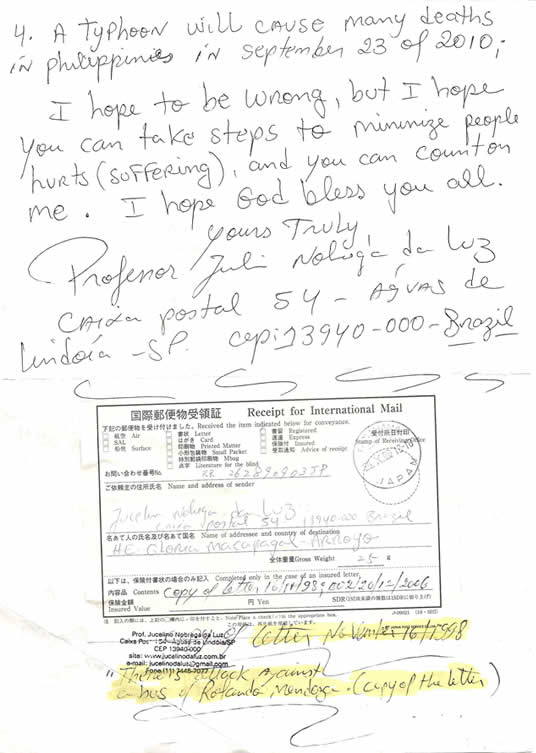 4. A Typhoon will cause many deaths
in philippines in september 23 of 2010;
I hope to be wrong, but I hope
you can take steps to minimize people
hurts (suffering), and you can count on
me. I hope God bless you all.
Yours Truly,
Professor Juli Nobrega da Luz
Caixa postal 54 - Águas de
Lindoía - SP. cep: 13940-000 - Brazil
国際郵便物受領証 Receipt for International Mail
下記の郵便物を受け付けました。 Received the item indicated below for conveyance.
航空 Air 書状 Letter 書留 Registered
SAL はがき Card 速達 Express
船便 Surface 印刷物 Printed Matter 保険付 Insured
小形包装物 Small Packet 受取通知 Advice of receipt
特別郵袋印刷物 Mbag
点字 Literature for the blind
受付局日付印
Stamp of Receiving Office
JAPAN
お問い合わせ番号No. RR 262890903 JP
ご依頼主の住所氏名 Name and address of sender
Jucelino Nobrega da Luz
Caixa postal 54 13940-000 Brazil
名あて人の氏名及び名あて国名 Name of addressee and country of destination
H.E. Gloria Macapagal-Arroyo
全体重量Gross Weight 25 g
以下は、保険付書状の場合のみ記入 Completed only in the case of an insured letter.
内容品 Contents Copy of letter
保険金額 円 Yen SDR
Insured Value
Prof. Jucelino Nobrega da Luz
Caixa Postal 54 - Águas de Lindóia/SP
CEP 13940-000
site: www.jucelinodaluz.com.br
e-mail: jucelinodaluz@gmail.com
of letter November 1998
"There is attack against
a bus of Rolando Mendoza. (copy of the letter)